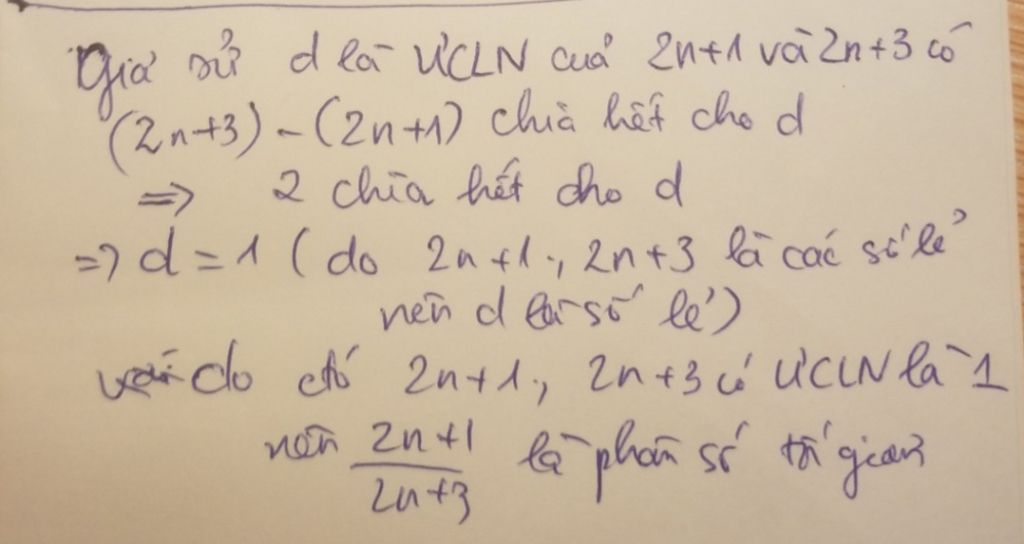 Giả sử d là ƯCLN của 2n+1 và 2n+3 có
(2n+3) - (2n+1) chia hết cho d
=> 2 chia hết cho d
=> d = 1 ( do 2n+1 ; 2n+3 là các số lẻ
nên d là số lẻ )
do đó 2n+1 ; 2n+3 có ƯCLN là 1
nên \frac{2n+1}{2n+3} là phân số tối giản